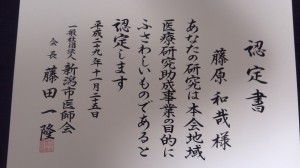 認定書
藤原和哉様
あなたの研究は本会地域
医療研究助成事業の目的に
ふさわしいものであると
認定します
平成二十九年十一月二十五日
一般社団法人 新潟市医師会
会長 藤田一隆